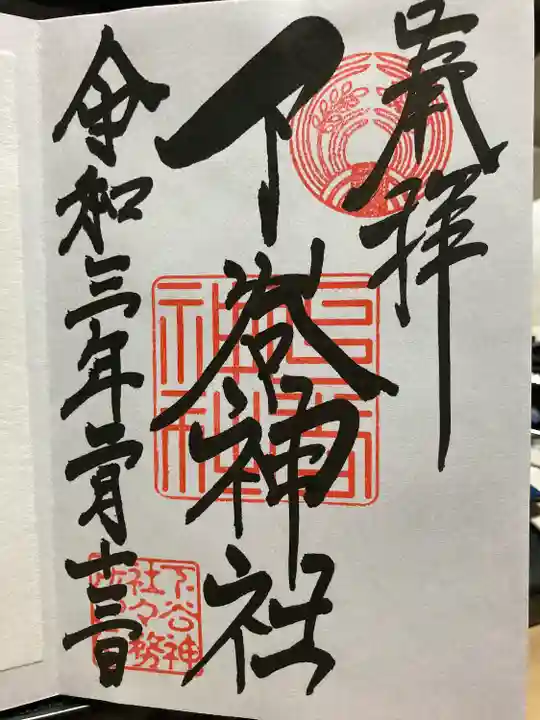 奉拝
下谷神社
下谷
神社
令和三年二月十三日
下谷神
社々務